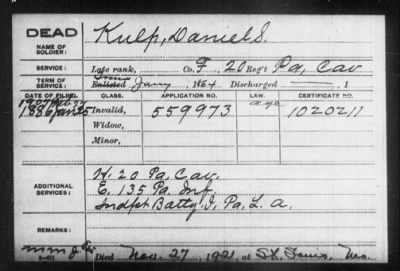 DEAD
NAME OF SOLDIER: Kulp, Daniel S.
SERVICE: Late rank, Co. F, 20 Reg't Pa, Cav
TERM OF SERVICE: Enlisted , 1864 Discharged , 1
DATE OF FILING. CLASS. APPLICATION NO. LAW. CERTIFICATE NO.
1907
1886 Jan 25 Invalid, 559973 age 1020211
Widow,
Minor,
ADDITIONAL SERVICES:
H. 20 Pa, Cav.
E. 135 Pa. Inf.
Indpt Batty I, Pa, L. a.
REMARKS:
Died Nov. 27, 1921, at St, Louis, Mo.